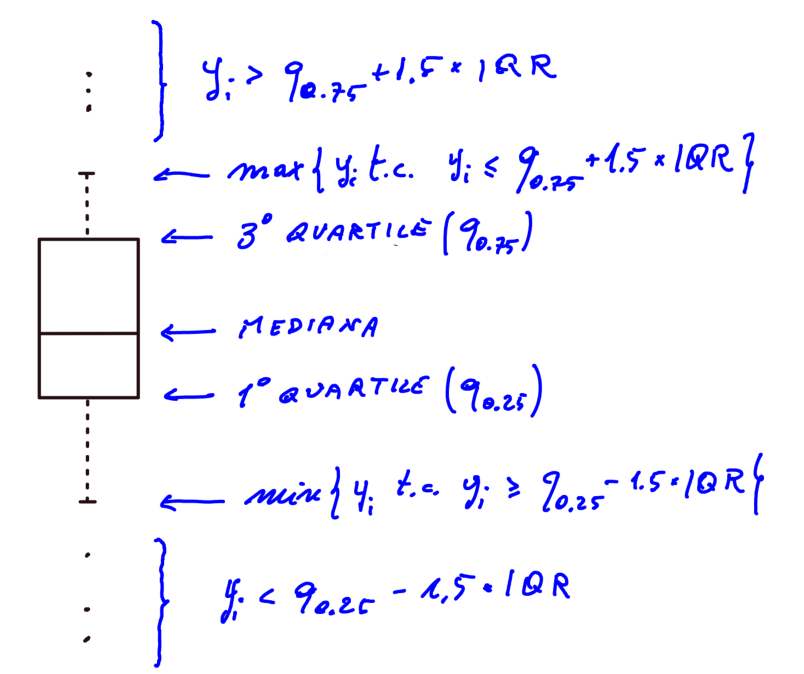 yi > q0.75 + 1.5 * IQR
max{ yi t.c. yi ≤ q0.75 + 1.5 * IQR }
3° QUARTILE (q0.75)
MEDIANA
1° QUARTILE (q0.25)
min{ yi t.c. yi ≥ q0.25 - 1.5 * IQR }
yi < q0.25 - 1,5 * IQR